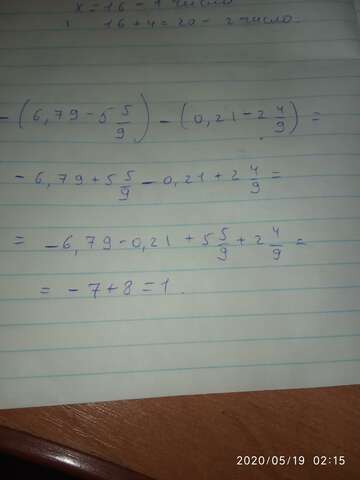 x = 16 - 1 число
16 + 4 = 20 - 2 число
- (6,79 - 5 5/9) - (0,21 - 2 4/9) =
- 6,79 + 5 5/9 - 0,21 + 2 4/9 =
= - 6,79 - 0,21 + 5 5/9 + 2 4/9 =
= - 7 + 8 = 1.
2020/05/19 02:15